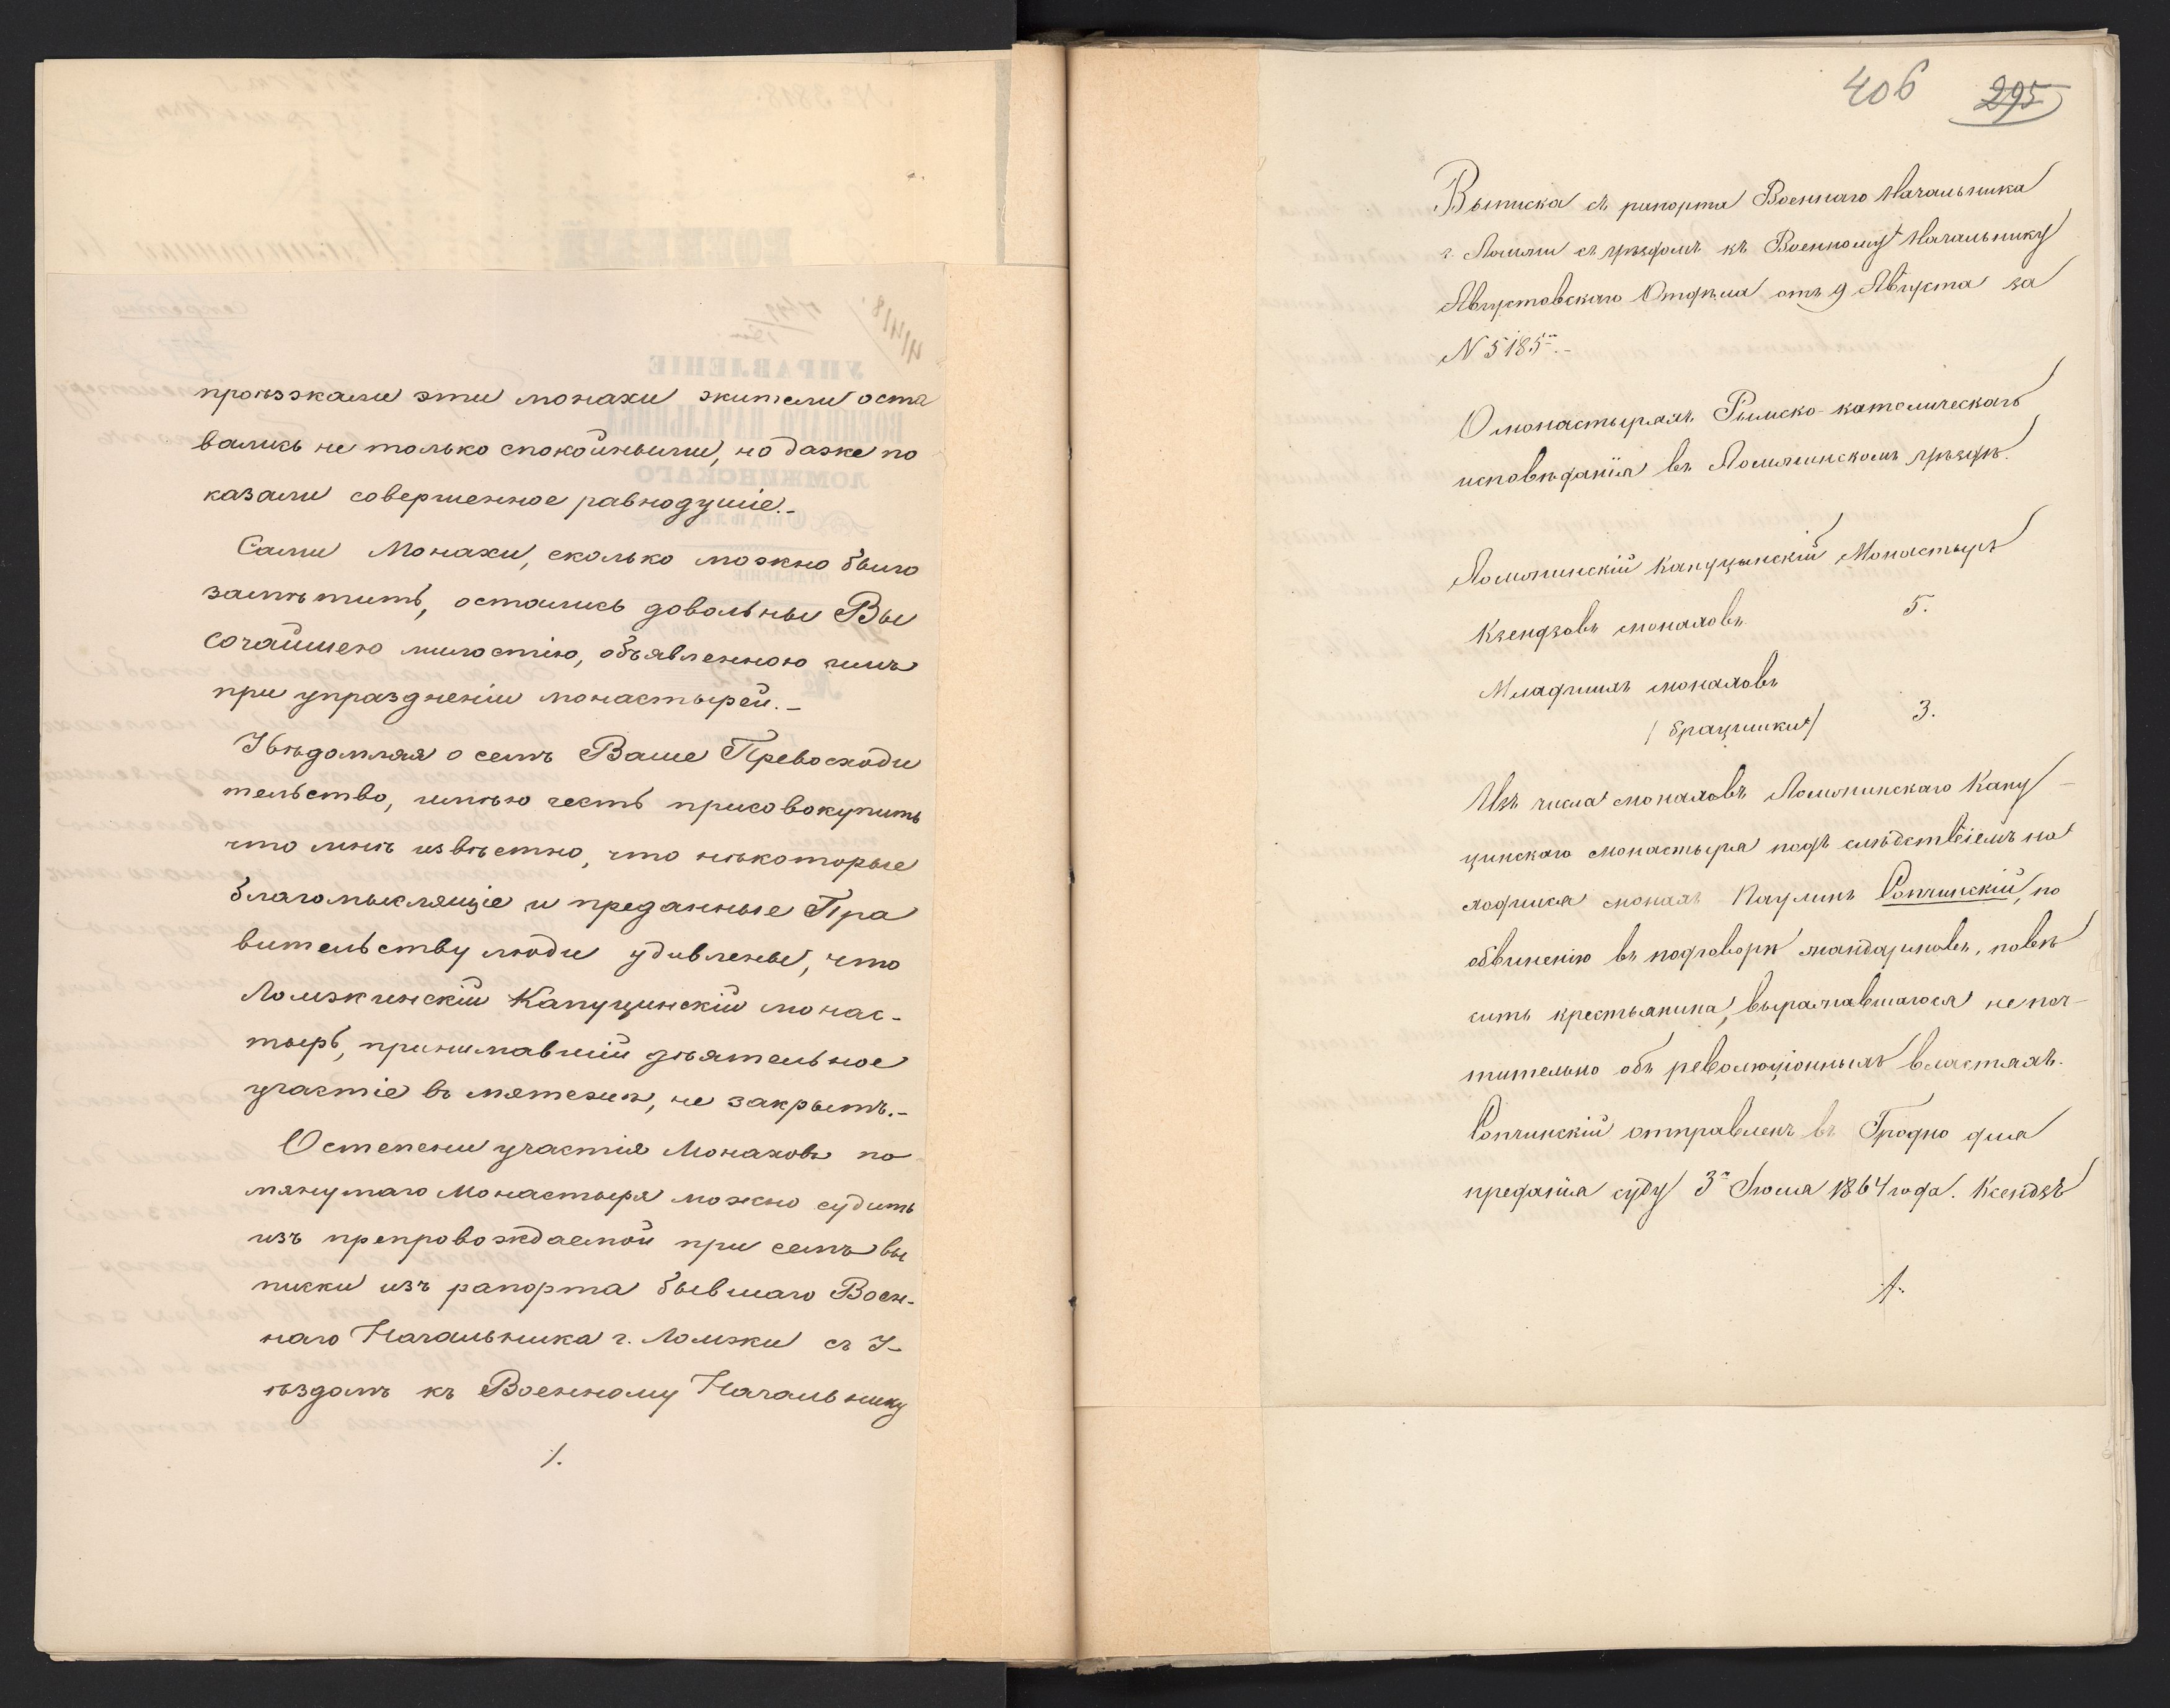 проѣзжали эти монахи жители оста
вались не только спокойными, но даже по
казали совершенное равнодушіе.-
Сами Монахи, сколько можно было
замѣтить, остались довольны Вы
сочайшею милостію, объявленною имъ
при упраздненіи монастырей.-
Увѣдомляя о семъ Ваше Превосходи
тельство, имѣю честь присовокупить
что мнѣ извѣстно, что нѣкоторые
благомыслящіе и преданные Пра
вительству люди удивлены, что
Ломжинскій Капуцинскій монас-
тырь, принимавшій дѣятельное
участіе въ мятежѣ, не закрытъ.-
О степени участія Монаховъ по
мянутаго Монастыря можно судить
изъ препровождаемой при семъ вы
писки изъ рапорта бывшаго Воен-
наго Начальника г. Ломжи съ У-
ѣздомъ къ Военному Начальнику
./.
406 295
Выписка съ рапорта Военнаго Начальника
г. Ломжи съ уѣздомъ къ Военному Начальнику
Августовскаго Отдѣла отъ 9 Августа за
N 5185.-
О монастыряхъ Римско-католическаго
исповѣданія въ Ломжинскомъ уѣздѣ.
Ломжинскій Капуцынскій Монастырь
Ксендзовъ монаховъ 5.
Младшихъ монаховъ
/брацишки/ 3.
Изъ числа монаховъ Ломжинскаго Капу-
цинскаго монастыря подъ слѣдствіемъ на
ходился монахъ Паулинъ Сопчинскій, по
обвиненію въ подговорѣ жандармовъ, повѣ
сить крестьянина, выражавшагося не поч-
тительно объ революціонныхъ властяхъ.
Сопчинскій отправленъ въ Гродно для
преданія суду 3го Іюля 1864 года. Ксендзъ
./.
УПРАВЛЕНІЕ
ВОЕННАГО НАЧАЛЬНИКА
ЛОМЖИНСКАГО
Отдѣла
ОТДѢЛЕНІЕ
№